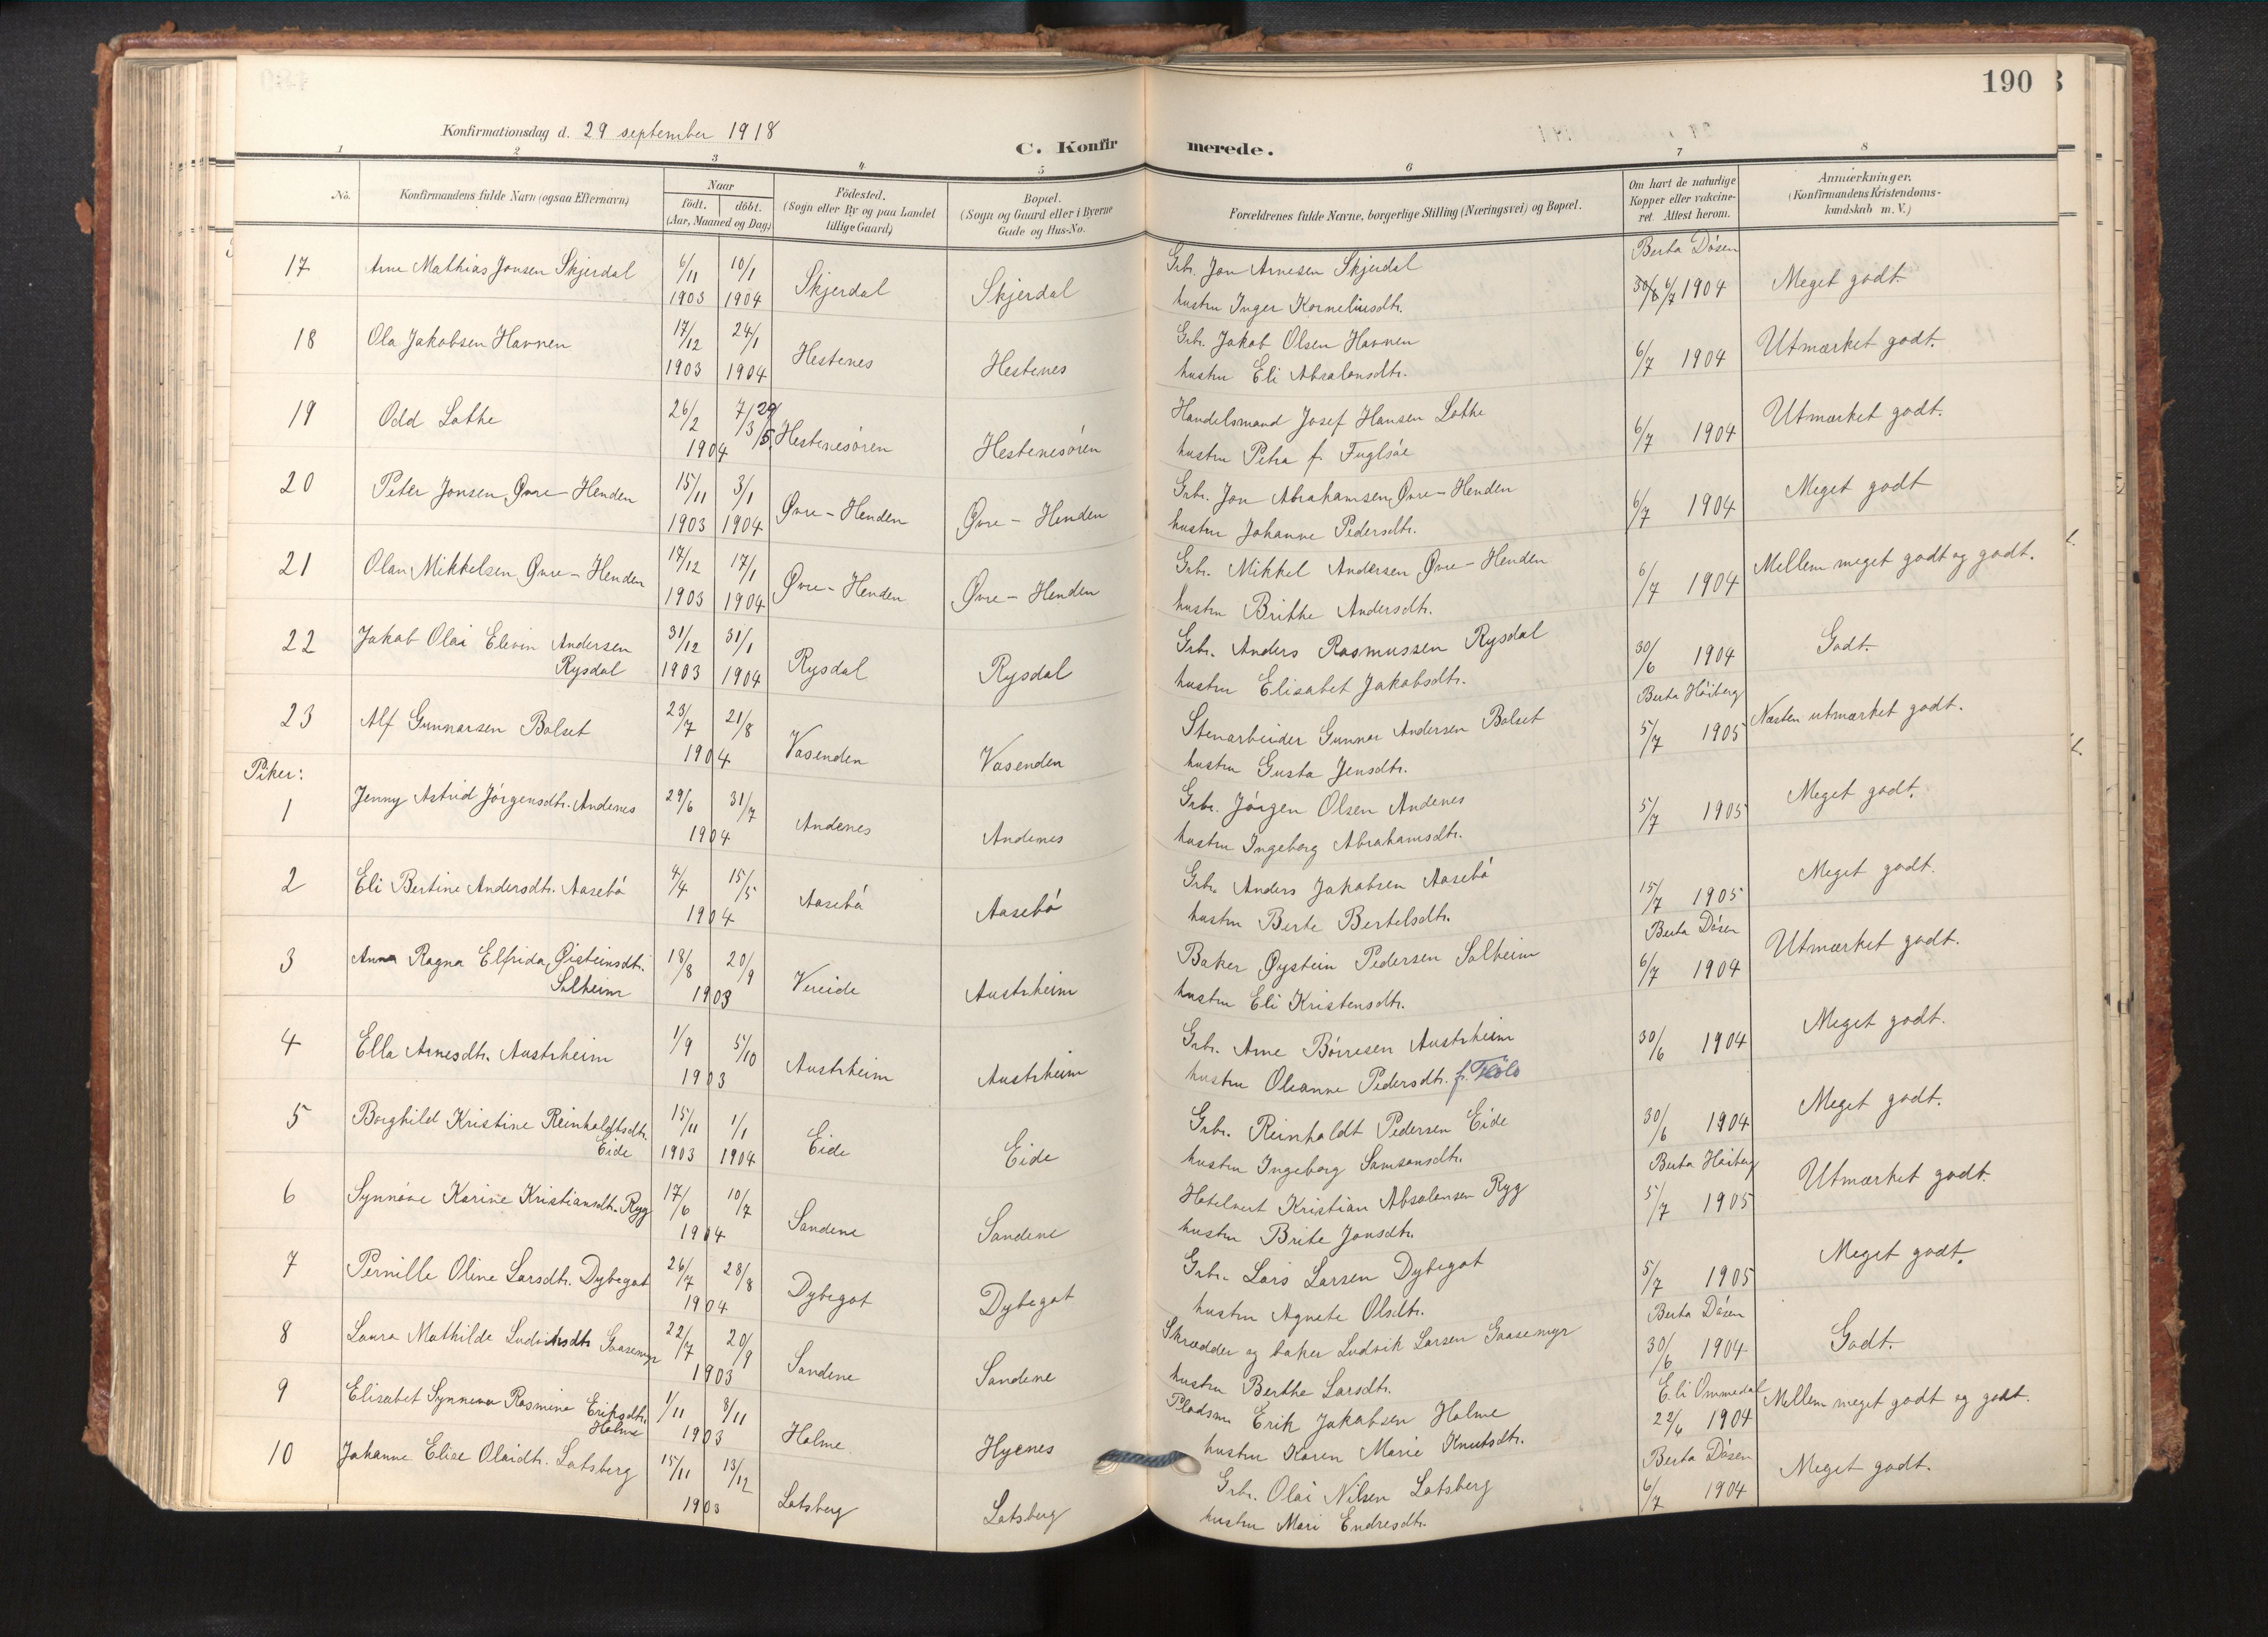 190
Konfirmationsdag d. 29 september 1918
C. Konfirmerede.
1 2 3 4 5 6 7 8
No.
Konfirmandens fulde Navn (ogsaa Efternavn)
Naar
født. døbt.
(Aar, Maaned og Dag.)
Fødested.
(Sogn eller By og paa Landet
tillige Gaard)
Bopæl.
(Sogn og Gaard eller i Byerne
Gade og Hus-No.
Forældrenes fulde Navne, borgerlige Stilling (Næringsvei) og Bopæl.
Om havt de naturlige
Kopper eller vakcine-
ret. Attest herom.
Anmærkninger.
(Konfirmandens Kristendoms-
kundskab m.V.)
Berta Døsen
17 Arne Mathias Jonsen Skjerdal 6/11 10/1 Grb. Jon Arnesen Skjerdal
1903 1904 Skjerdal Skjerdal hustru Inger Korneliusdtr. 6/7 1904 Meget godt.
18 Ola Jakobsen Havnen 17/12 24/1 Grb. Jakob Olsen Havnen Utmærket godt.
1903 1904 Hestenes Hestenes hustru Eli Absalonsdtr. 6/7 1904
19 Odd Lothe 26/2 7/3 29/5 Handelsmand Josef Hansen Lothe Utmærket godt.
1904 Hestenesøren Hestenesøren hustru Petra f. Fuglsøe 6/7 1904
20 Peter Jonsen Øvre-Henden 15/11 3/1 Grb. Jon Abrahamsen Øvre-Henden Meget godt
1903 1904 Øvre-Henden Øvre-Henden hustru Johanne Pedersdtr. 6/7 1904
21 Olav Mikkelsen Øvre-Henden 17/12 17/1 Grb. Mikkel Andersen Øvre-Henden Mellem meget godt og godt.
1903 1904 Øvre-Henden Øvre-Henden hustru Brithe Andersdtr. 6/7 1904
22 Jakob Olai Elevin Andersen 31/12 31/1 Grb. Anders Rasmussen Rysdal Godt.
Rysdal 1903 1904 Rysdal Rysdal hustru Elisabet Jakobsdtr. 30/6 1904
Berta Høiberg
23 Alf Gunnarsen Bolset 23/7 21/8 Stenarbeider Gunnar Andersen Bolset 5/7 1905 Næsten utmærket godt.
1904 Vasenden Vasenden hustru Gusta Jensdtr.
Piker:
1 Jenny Astrid Jørgensdtr. Andenes 29/6 31/7 Grbr. Jørgen Olsen Andenes 5/7 1905 Meget godt.
1904 Andenes Andenes hustru Ingeborg Abrahamsdtr.
2 Eli Bertine Andersdtr. Aasebø 4/4 15/5 Grb. Anders Jakobsen Aasebø 15/7 1905 Meget godt.
1904 Aasebø Aasebø hustru Berte Bertelsdtr.
Berta Døsen
3 Anna Ragna Elfrida Øisteinsdtr. 18/8 20/9 Baker Øystein Pedersen Solheim 6/7 1904 Utmærket godt.
Solheim 1903 Vereide Austrheim hustru Eli Kristensdtr.
4 Ella Arnesdtr. Austrheim 1/9 5/10 Grb. Arne Børresen Austrheim 30/6 1904 Meget godt.
1903 Austrheim Austrheim hustru Oleanne Pedersdtr.
5 Borghild Kristine Reinholdtsdtr. 15/11 1/1 Grbr. Reinholdt Pedersen Eide 30/6 1904 Meget godt.
Eide 1903 1904 Eide Eide hustru Ingeborg Samsonsdtr.
Berta Høiberg
6 Synnøve Karine Kristiansdtr. Ryg 17/6 10/7 Hotelvert Kristian Absalonsen Ryg 5/7 1905 Utmærket godt.
1904 Sandene Sandene hustru Brite Jonsdtr.
7 Pernille Oline Larsdtr. Dybegot 26/7 28/8 Grb. Lars Larsen Dybegot 5/7 1905 Meget godt.
1904 Dybegot Dybegot hustru Agnete Olsdtr.
Berta Døsen
8 Laura Mathilde Ludviksdtr. Gaasemyr 22/7 20/9 Skrædder og baker Ludvik Larsen Gaasemyr 30/6 1904 Godt.
1903 Sandene Sandene hustru Berthe Larsdtr.
Eli Ommedal
9 Elisabet Synneva Rasmine Eriksdtr. 1/11 8/11 Pladsm. Erik Jakobsen Holme 22/6 1904 Mellem meget godt og godt.
Holme 1903 Holme Hyenes hustru Karen Marie Knutsdtr.
Berta Døsen
10 Johanne Elise Olaidtr. Lotsberg 15/11 13/12 Grbr. Olai Nilsen Lotsberg 6/7 1904 Meget godt.
1903 Lotsberg Lotsberg hustru Mari Endresdtr.